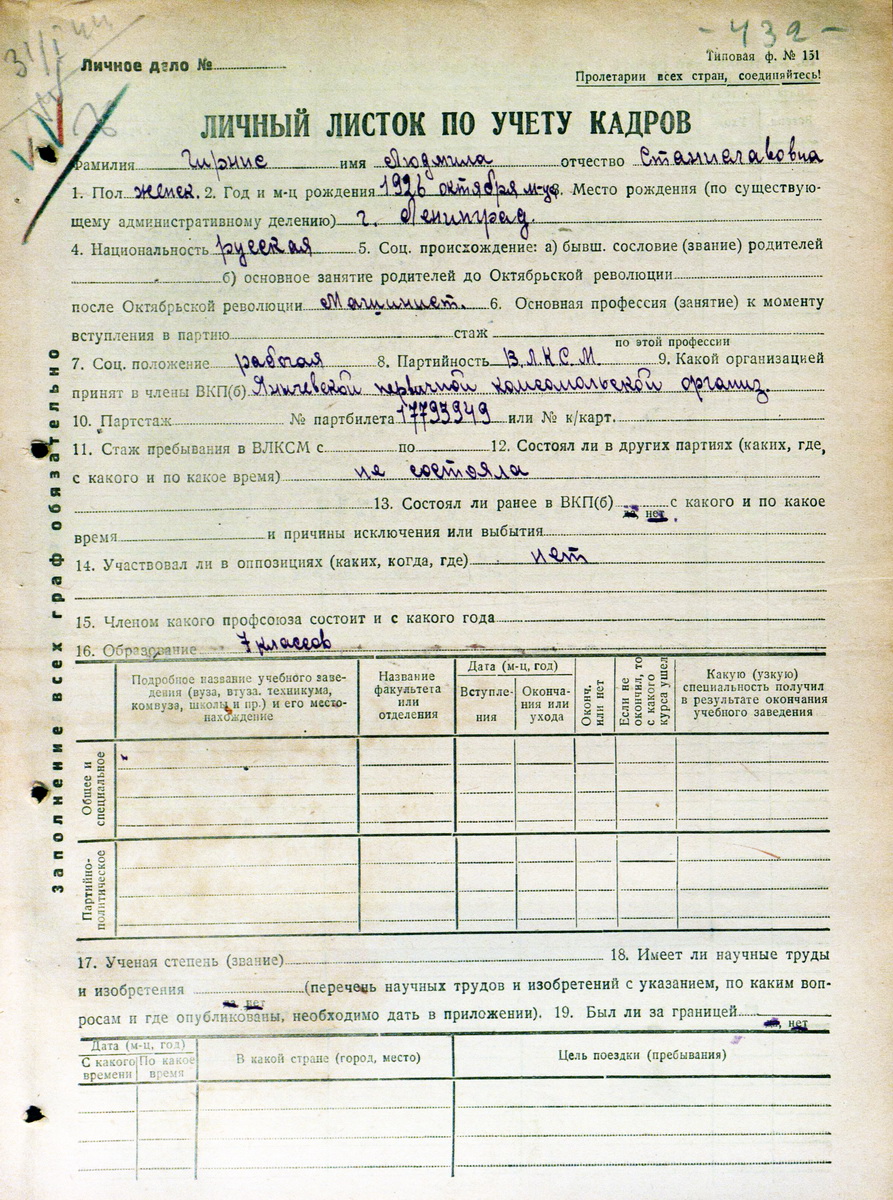 - 432 -
Личное дело №
Типовая ф. № 151
Пролетарии всех стран, соединяйтесь!
ЛИЧНЫЙ ЛИСТОК ПО УЧЕТУ КАДРОВ
Фамилия Гирнис имя Людмила отчество Станиславовна
1. Пол женск. 2. Год и м-ц рождения 1926 октября м-ца 3. Место рождения (по существую-
щему административному делению) г. Ленинград.
4. Национальность русская 5. Соц. происхождение: а) бывш. сословие (звание) родителей
б) основное занятие родителей до Октябрьской революции
после Октябрьской революции Машинист. 6. Основная профессия (занятие) к моменту
вступления в партию стаж
по этой профессии
7. Соц. положение рабочая 8. Партийность ВЛКСМ 9. Какой организацией
принят в члены ВКП(б) первичной комсомольской организ.
10. Партстаж № партбилета 17793949 или № к/карт.
11. Стаж пребывания в ВЛКСМ с по 12. Состоял ли в других партиях (каких, где,
с какого и по какое время) не состояла
13. Состоял ли ранее в ВКП(б) с какого и по какое
да, нет
время и причины исключения или выбытия
14. Участвовал ли в оппозициях (каких, когда, где) нет
15. Членом какого профсоюза состоит и с какого года
16. Образование 7 классов
заполнение всех граф обязательно
Подробное название учебного заве-
дения (вуза, втуза, техникума,
комвуза, школы и пр.) и его место-
нахождение
Название
факультета
или
отделения
Дата (м-ц, год)
Вступле-
ния
Оконча-
ния или
ухода
Оконч.
или нет
Если не
окончил, то
с какого
курса ушел
Какую (узкую)
специальность получил
в результате окончания
учебного заведения
Общее и
специальное
Партийно-
политическое
17. Ученая степень (звание) 18. Имеет ли научные труды
и изобретения (перечень научных трудов и изобретений с указанием, по каким воп-
да, нет
росам и где опубликованы, необходимо дать в приложении). 19. Был ли за границей
да, нет
Дата (м-ц, год)
С какого
времени
По какое
время
В какой стране (город, место)
Цель поездки (пребывания)